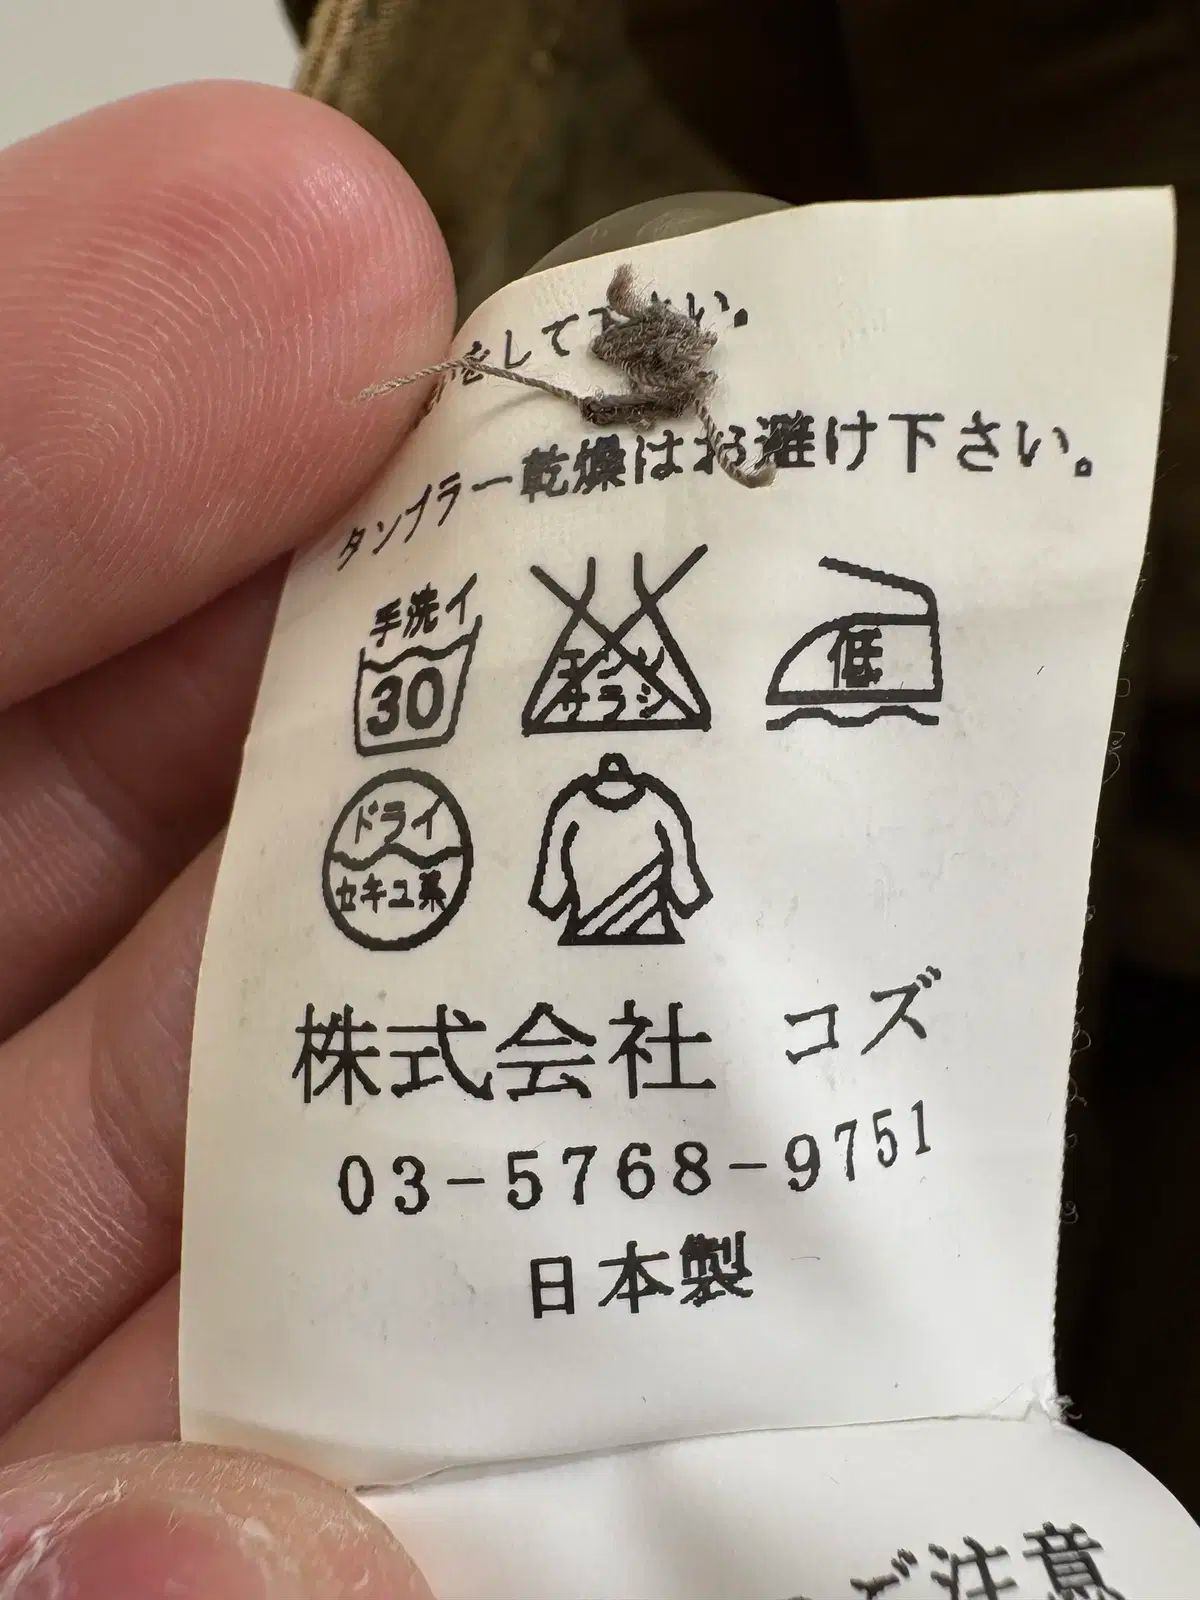 をして下さい。
タンブラー乾燥はお避け下さい。
手洗イ
30
エンソ
サラシ
低
ドライ
セキユ系
株式会社 コズ
03-5768-9751
日本製
ご注意